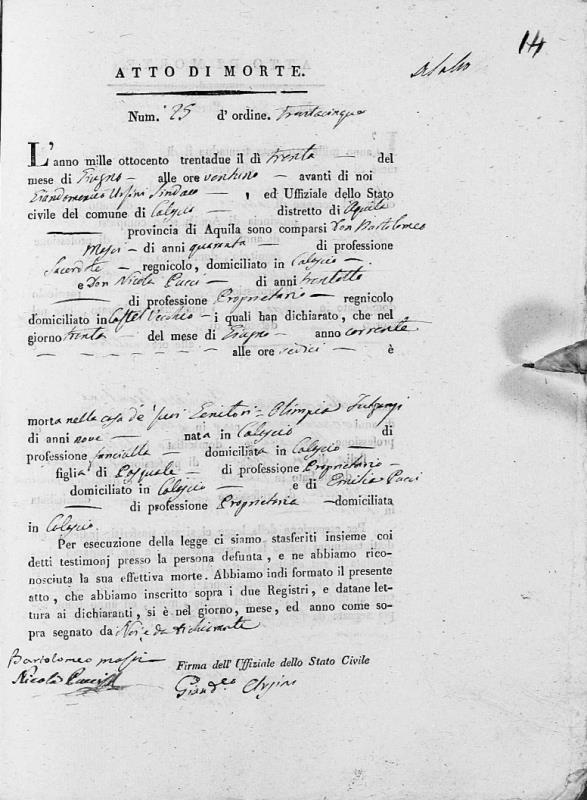 14
ATTO DI MORTE.
Num.° 25 d'ordine. trentacinque
L'anno mille ottocento trentadue il dì trenta del
mese di Giugno alle ore ventuno avanti di noi
Giandomenico Ursini Sindaco , ed Uffiziale dello Stato
civile del comune di Calascio distretto di Aquila
provincia di Aquila sono comparsi Don Bartolomeo
di anni quaranta di professione
Sacerdote regnicolo, domiciliato in Calascio
e Don Nicola Pucci di anni trentotto
di professione Proprietario regnicolo
domiciliato in Castel Vecchio i quali han dichiarato, che nel
giorno trenta del mese di Giugno anno corrente
alle ore sedici è
morta nella casa de' suoi Genitori Olimpia
di anni nove nata in Calascio di
professione fanciulla domiciliata in Calascio
figlia di Pasquale di professione Proprietario
domiciliato in Calascio e di Emilia Pucci
di professione Proprietaria domiciliata
in Calascio
Per esecuzione della legge ci siamo stasferiti insieme coi
detti testimonj presso la persona defunta, e ne abbiamo rico-
nosciuta la sua effettiva morte. Abbiamo indi formato il presente
atto, che abbiamo inscritto sopra i due Registri, e datane let-
tura ai dichiaranti, si è nel giorno, mese, ed anno come so-
pra segnato da Noi, e da dichiaranti
Bartolomeo
Nicola Pucci
Firma dell'Uffiziale dello Stato Civile
Giand.co Ursini